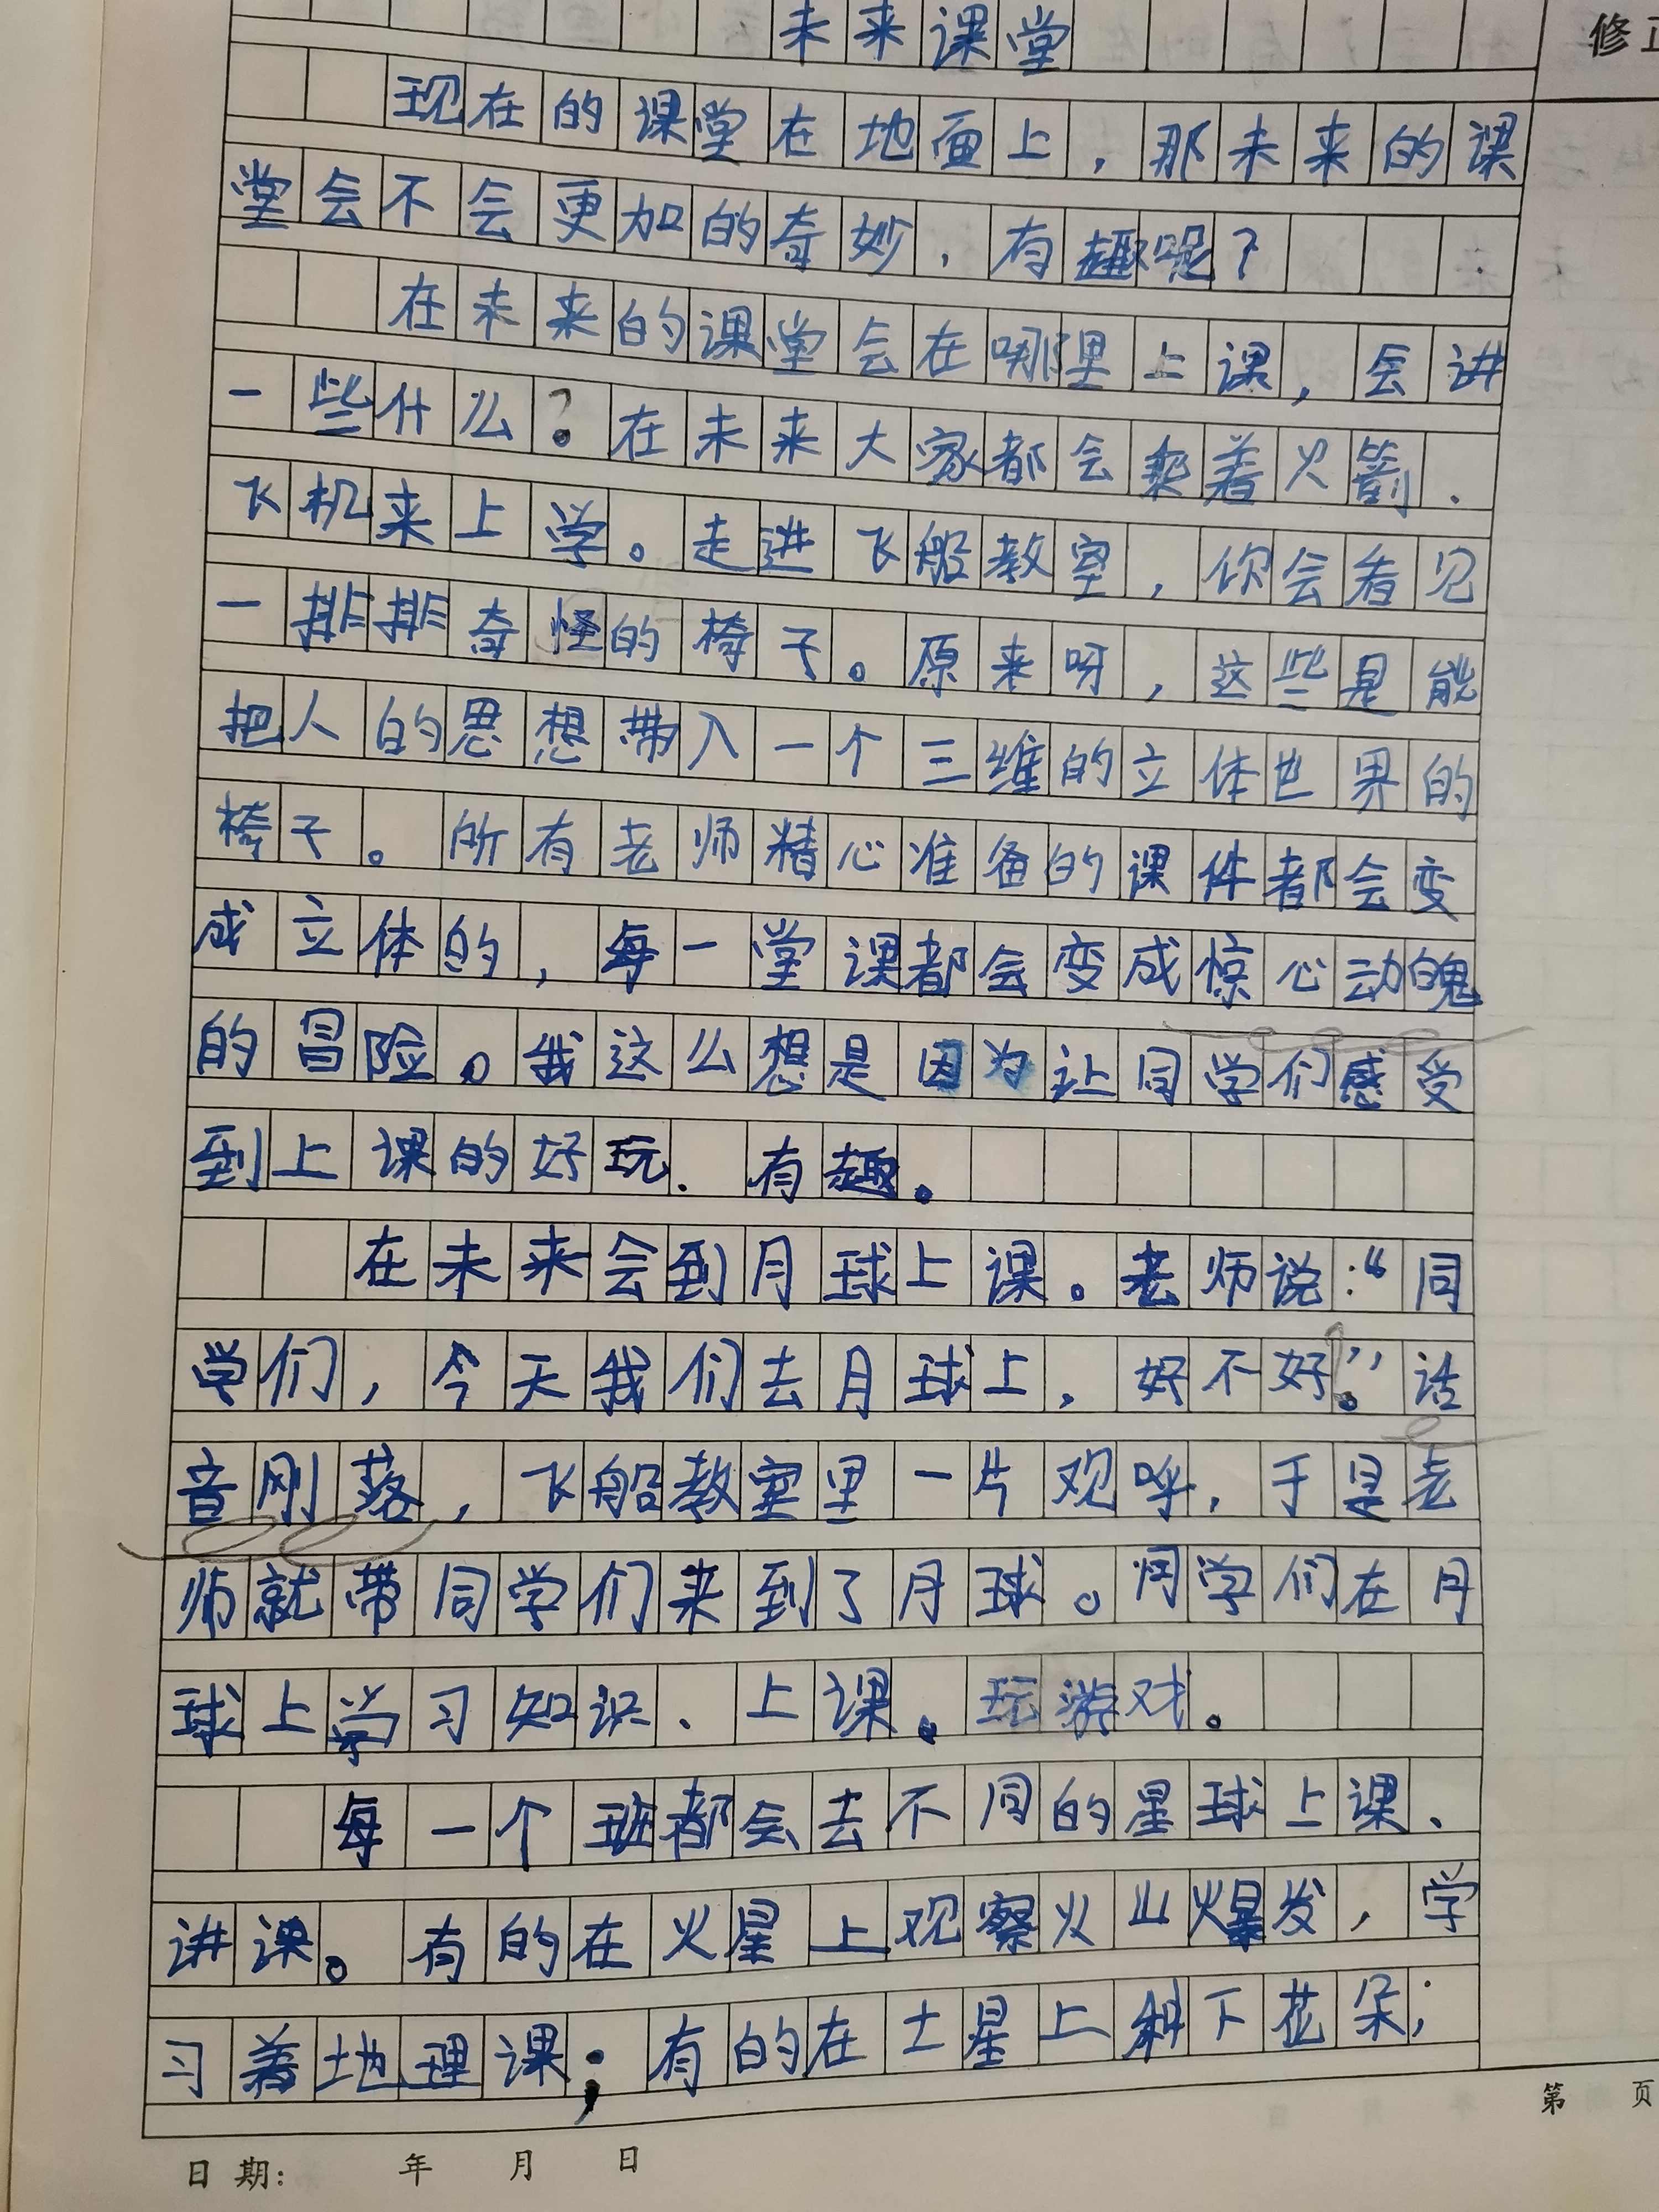 未来课堂
修正
现在的课堂在地面上，那未来的课
堂会不会更加的奇妙、有趣呢？
在未来的课堂会在哪里上课，会讲
一些什么？在未来大家都会乘着火箭、
飞机来上学。走进飞船教室，你会看见
一排排奇怪的椅子。原来呀，这些是能
把人的思想带入一个三维的立体世界的
椅子。所有老师精心准备的课件都会变
成立体的，每一堂课都会变成惊心动魄
的冒险。我这么想是因为让同学们感受
到上课的好玩、有趣。
在未来会到月球上课。老师说：“同
学们，今天我们去月球上，好不好？”话
音刚落，飞船教室里一片观呼，于是老
师就带同学们来到了月球。同学们在月
球上学习知识、上课、玩游戏。
每一个班都会去不同的星球上课、
讲课。有的在火星上观察火山爆发，学
习着地理课；有的在土星上斜下花朵；
第 页
日期： 年 月 日